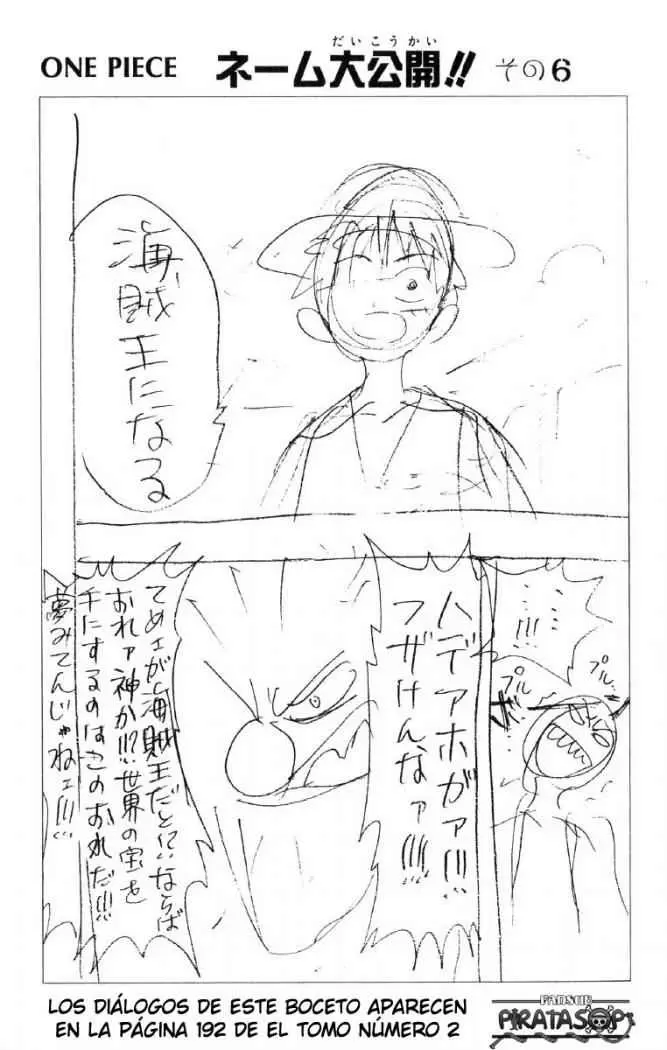 ONE PIECE ネーム大公開!! その6
だいこうかい
海賊
王に
なる
!!!
プル
プル
ハデアホがァ!!!
フザけんなァ!!!!
てめェが海賊王だと!?ならば
おれァ神か!!?世界の宝を
手にするのはこのおれだ!!!
夢みてんじゃねェ!!!
LOS DIÁLOGOS DE ESTE BOCETO APARECEN
EN LA PÁGINA 192 DE EL TOMO NÚMERO 2
FANSUB
PIRATASOP